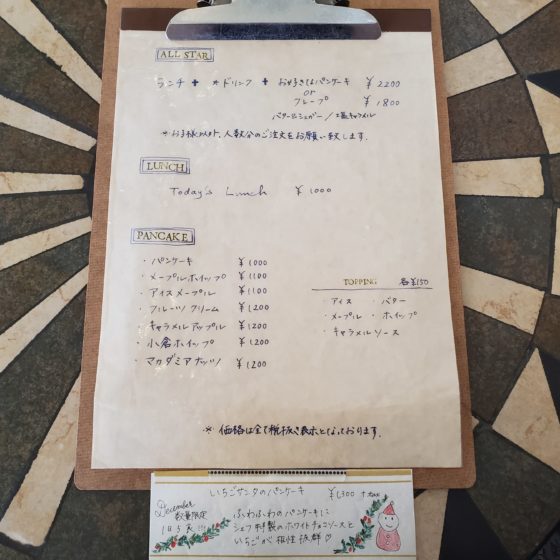 ALL STAR
ランチ + *ドリンク + お好きなパンケーキ ¥2200
or
クレープ ¥1800
バター&シュガー/塩キャラメル
※お子様以外、人数分のご注文をお願い致します。
LUNCH
Today's Lunch ¥1000
PANCAKE
・パンケーキ ¥1000
・メープルホイップ ¥1100
・アイスメープル ¥1100
・フルーツクリーム ¥1200
・キャラメルアップル ¥1200
・小倉ホイップ ¥1200
・マカダミアナッツ ¥1200
TOPPING 各¥150
・アイス ・バター
・メープル ・ホイップ
・キャラメルソース
※価格は全て税抜き表示となっております。
いちごサンタのパンケーキ ¥1,300 +tax
December
数量限定
1日5食
ふわふわのパンケーキに
シェフ特製のホワイトチョコソースと
いちごが相性抜群♡